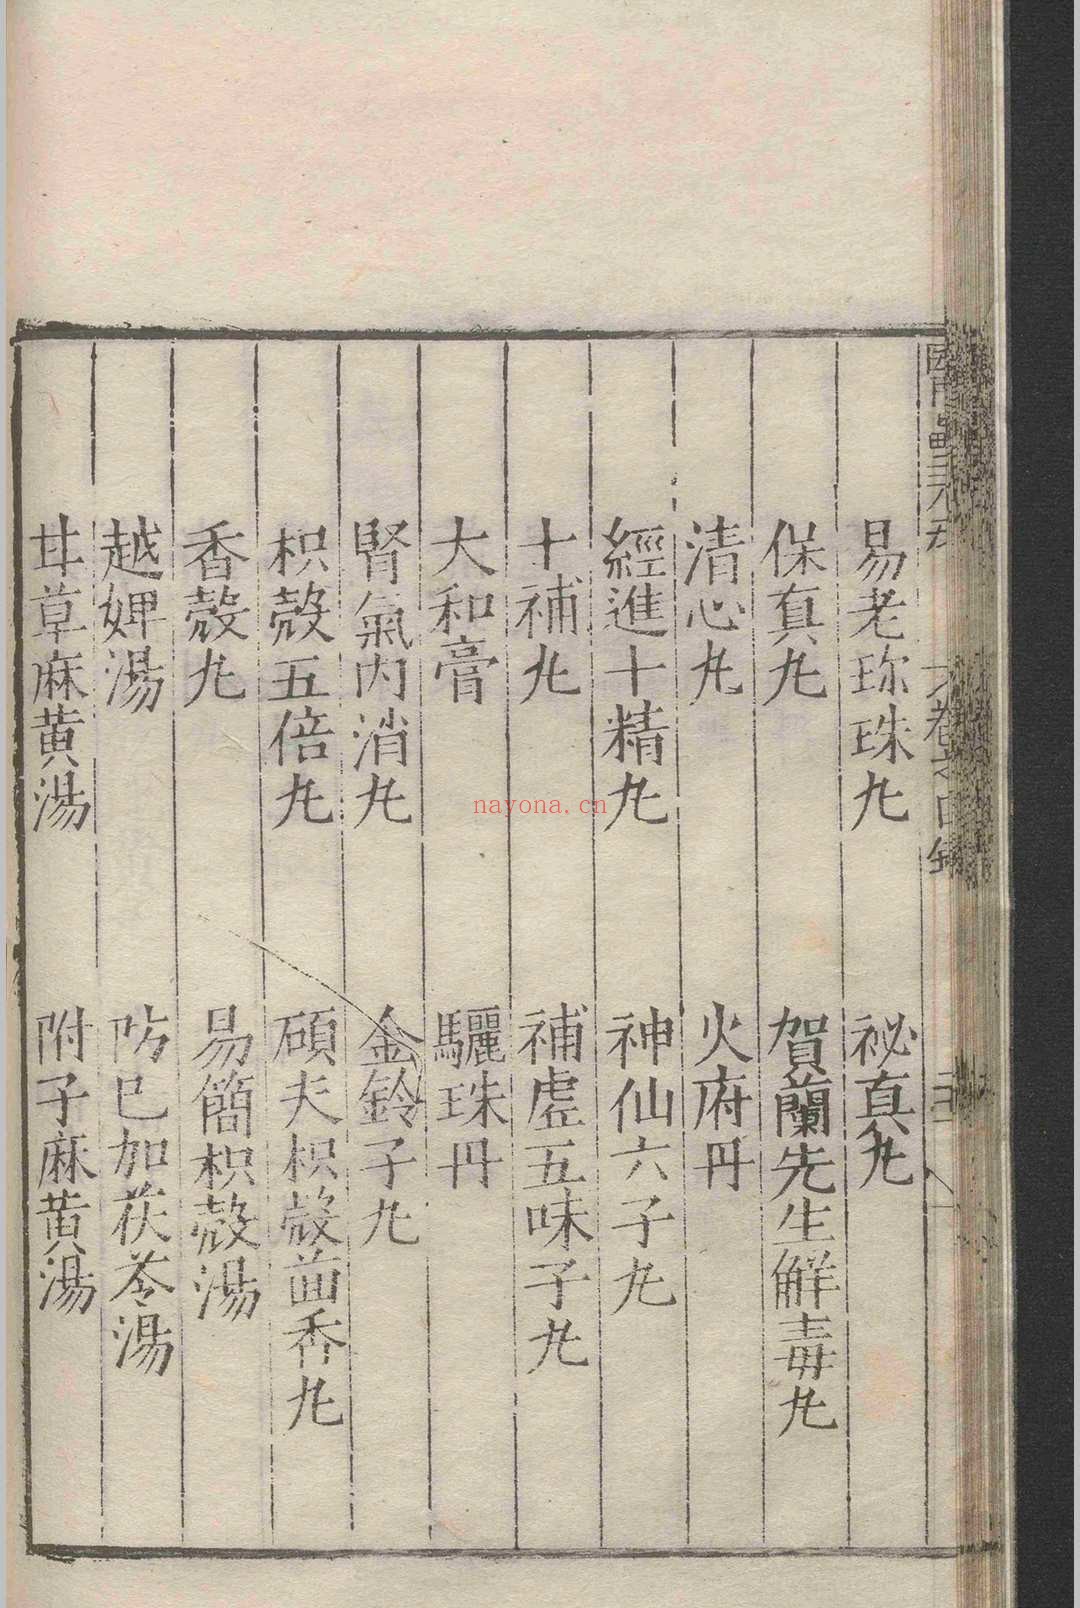 易老珎珠丸 祕真丸
保真丸 賀蘭先生解毒丸
清心丸 火府丹
經進十精丸 神仙六子丸
十補丸 補虛五味子丸
大和膏 驪珠丹
腎氣内消丸 金鈴子丸
枳殼五倍丸 碩夫枳殼茴香丸
香殼丸 易簡枳殼湯
越婢湯 防已加茯苓湯
甘草麻黄湯 附子麻黄湯
nayona.cn